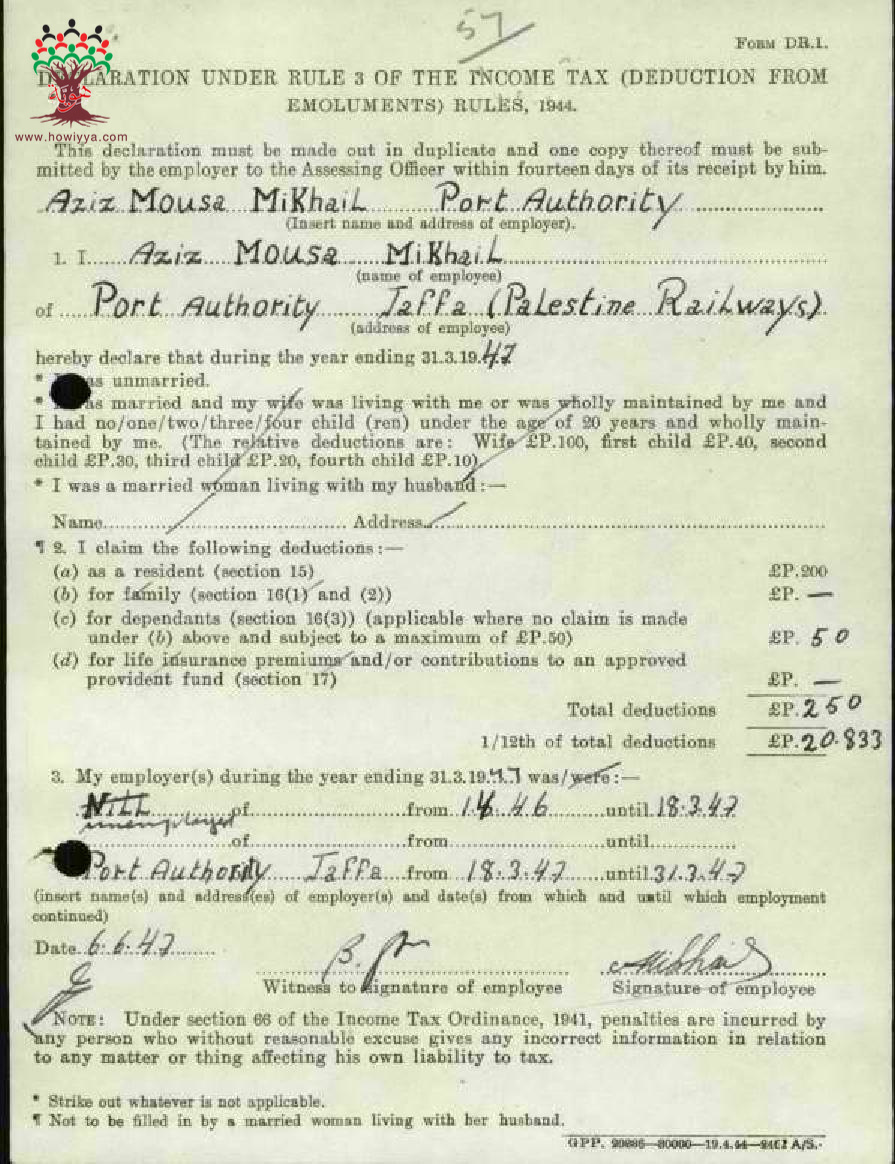 57
FORM DR.1.
ARATION UNDER RULE 3 OF THE INCOME TAX (DEDUCTION FROM
EMOLUMENTS) RULES, 1944.
www.howiyya.com
This declaration must be made out in duplicate and one copy thereof must be sub-
mitted by the employer to the Assessing Officer within fourteen days of its receipt by him.
Aziz Mousa Mikhail Port Authority
(Insert name and address of employer).
1. I Aziz Mousa Mikhail
(name of employee)
of Port Authority Jaffa (Palestine Railways)
(address of employee)
hereby declare that during the year ending 31.3.19.47
* as unmarried.
* as married and my wife was living with me or was wholly maintained by me and
I had no/one/two/three/four child (ren) under the age of 20 years and wholly main-
tained by me. (The relative deductions are: Wife £P.100, first child £P.40, second
child £P.30, third child £P.20, fourth child £P.10).
* I was a married woman living with my husband:—
Name Address
¶ 2. I claim the following deductions:—
(a) as a resident (section 15) £P.200
(b) for family (section 16(1) and (2)) £P. —
(c) for dependants (section 16(3)) (applicable where no claim is made
under (b) above and subject to a maximum of £P.50) £P. 50
(d) for life insurance premiums and/or contributions to an approved
provident fund (section 17) £P. —
Total deductions £P.250
1/12th of total deductions £P.20.833
3. My employer(s) during the year ending 31.3.19.47 was/were:—
Nill of from 1.4.46 until 18.3.47
unemployed
of from until
Port Authority Jaffa from 18.3.47 until 31.3.47
(insert name(s) and address(es) of employer(s) and date(s) from which and until which employment
continued)
Date 6.6.47
Witness to signature of employee Signature of employee
NOTE: Under section 66 of the Income Tax Ordinance, 1941, penalties are incurred by
any person who without reasonable excuse gives any incorrect information in relation
to any matter or thing affecting his own liability to tax.
* Strike out whatever is not applicable.
¶ Not to be filled in by a married woman living with her husband.
GPP. 20000—19.4.44 A/S.